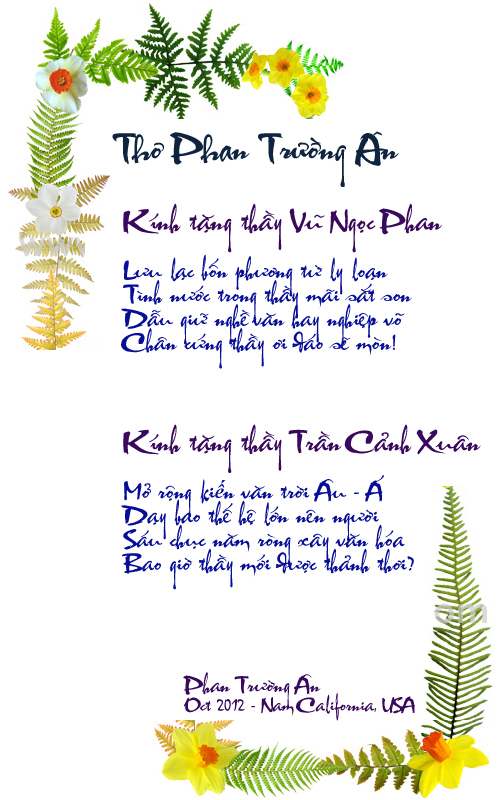 Thơ Phan Trường Ân
Kính tặng thầy Vũ Ngọc Phan
Lưu lạc bốn phương từ ly loạn
Tình nước trong thầy mãi sắt son
Dẫu giữ nghề văn hay nghiệp võ
Chân cứng thầy ơi đá sẽ mòn!
Kính tặng thầy Trần Cảnh Xuân
Mở rộng kiến văn trời Âu - Á
Dạy bao thế hệ lớn nên người
Sáu chục năm ròng xây văn hóa
Bao giờ thầy mới được thảnh thơi?
om
Phan Trường Ân
Oct 2012 - Nam California, USA